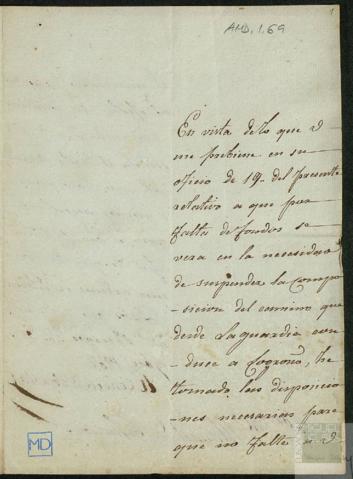 AHD, 1, 69
1
En vista de lo que V
me prebiene en su
oficio de 19 del presente
relativo a que por
falta de fondos se
vera en la necesidad
de suspender la compo
-sicion del camino que
desde Laguardia con
-duce a Logroño, he
tomado las disposicio
-nes necesarias para
que no falte a V
MD